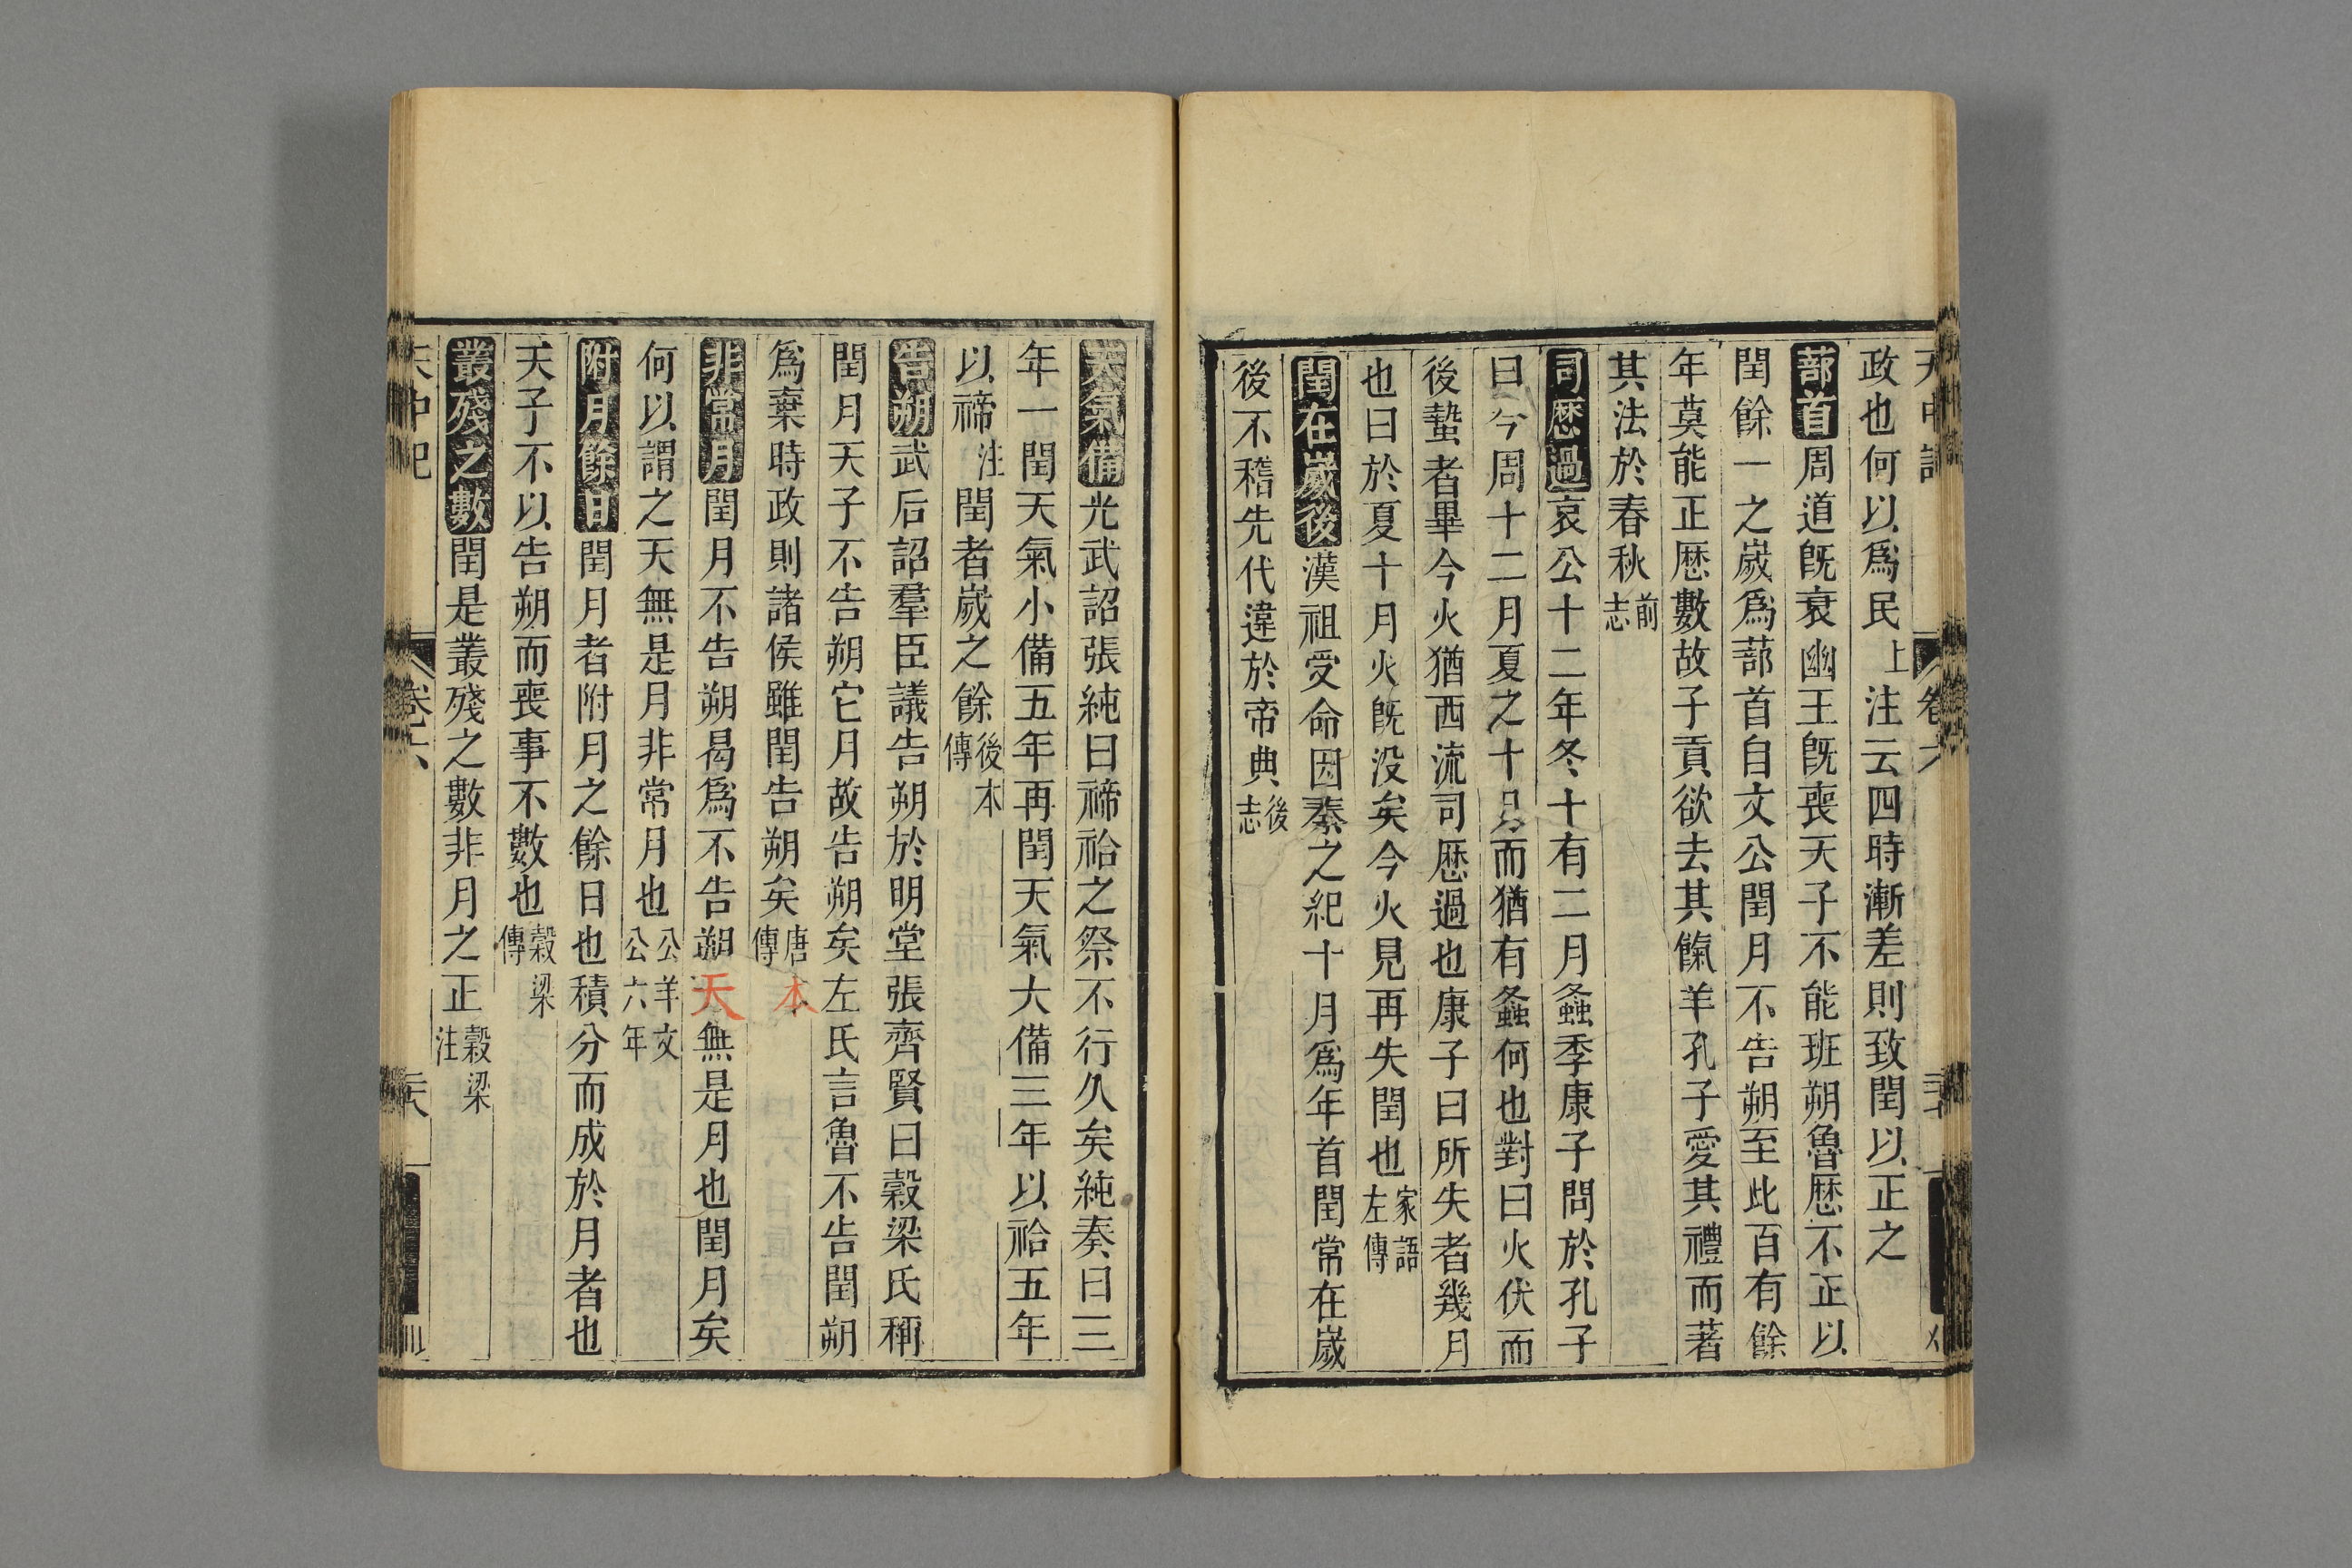 政也何以爲民上注云四時漸差則致閏以正之
蔀首周道旣衰幽王旣喪天子不能班朔魯厯不正以
閏餘一之嵗爲蔀首自文公閏月不告朔至此百有餘
年莫能正厯數故子貢欲去其餼羊孔子愛其禮而著
其法於春秋前志
司厯過哀公十二年冬十有二月螽季康子問於孔子
曰今周十二月夏之十月而猶有螽何也對曰火伏而
後蟄者畢今火猶西流司厯過也康子曰所失者幾月
也曰於夏十月火旣没矣今火見再失閏也家語左傳
閏在嵗後漢祖受命因秦之紀十月爲年首閏常在嵗
後不稽先代違於帝典後志
天氣備光武詔張純曰禘祫之祭不行久矣純奏曰三
年一閏天氣小備五年再閏天氣大備三年以祫五年
以禘注閏者嵗之餘後本傳
告朔武后詔羣臣議告朔於明堂張齊賢曰穀梁氏稱
閏月天子不告朔它月故告朔矣左氏言魯不告閏朔
爲棄時政則諸侯雖閏告朔矣唐本傳
非常月閏月不告朔曷爲不告朔天無是月也閏月矣
何以謂之天無是月非常月也公羊文公六年
附月餘日閏月者附月之餘日也積分而成於月者也
天子不以告朔而喪事不數也穀梁傳
叢殘之數閏是叢殘之數非月之正穀梁注
天中記 卷六